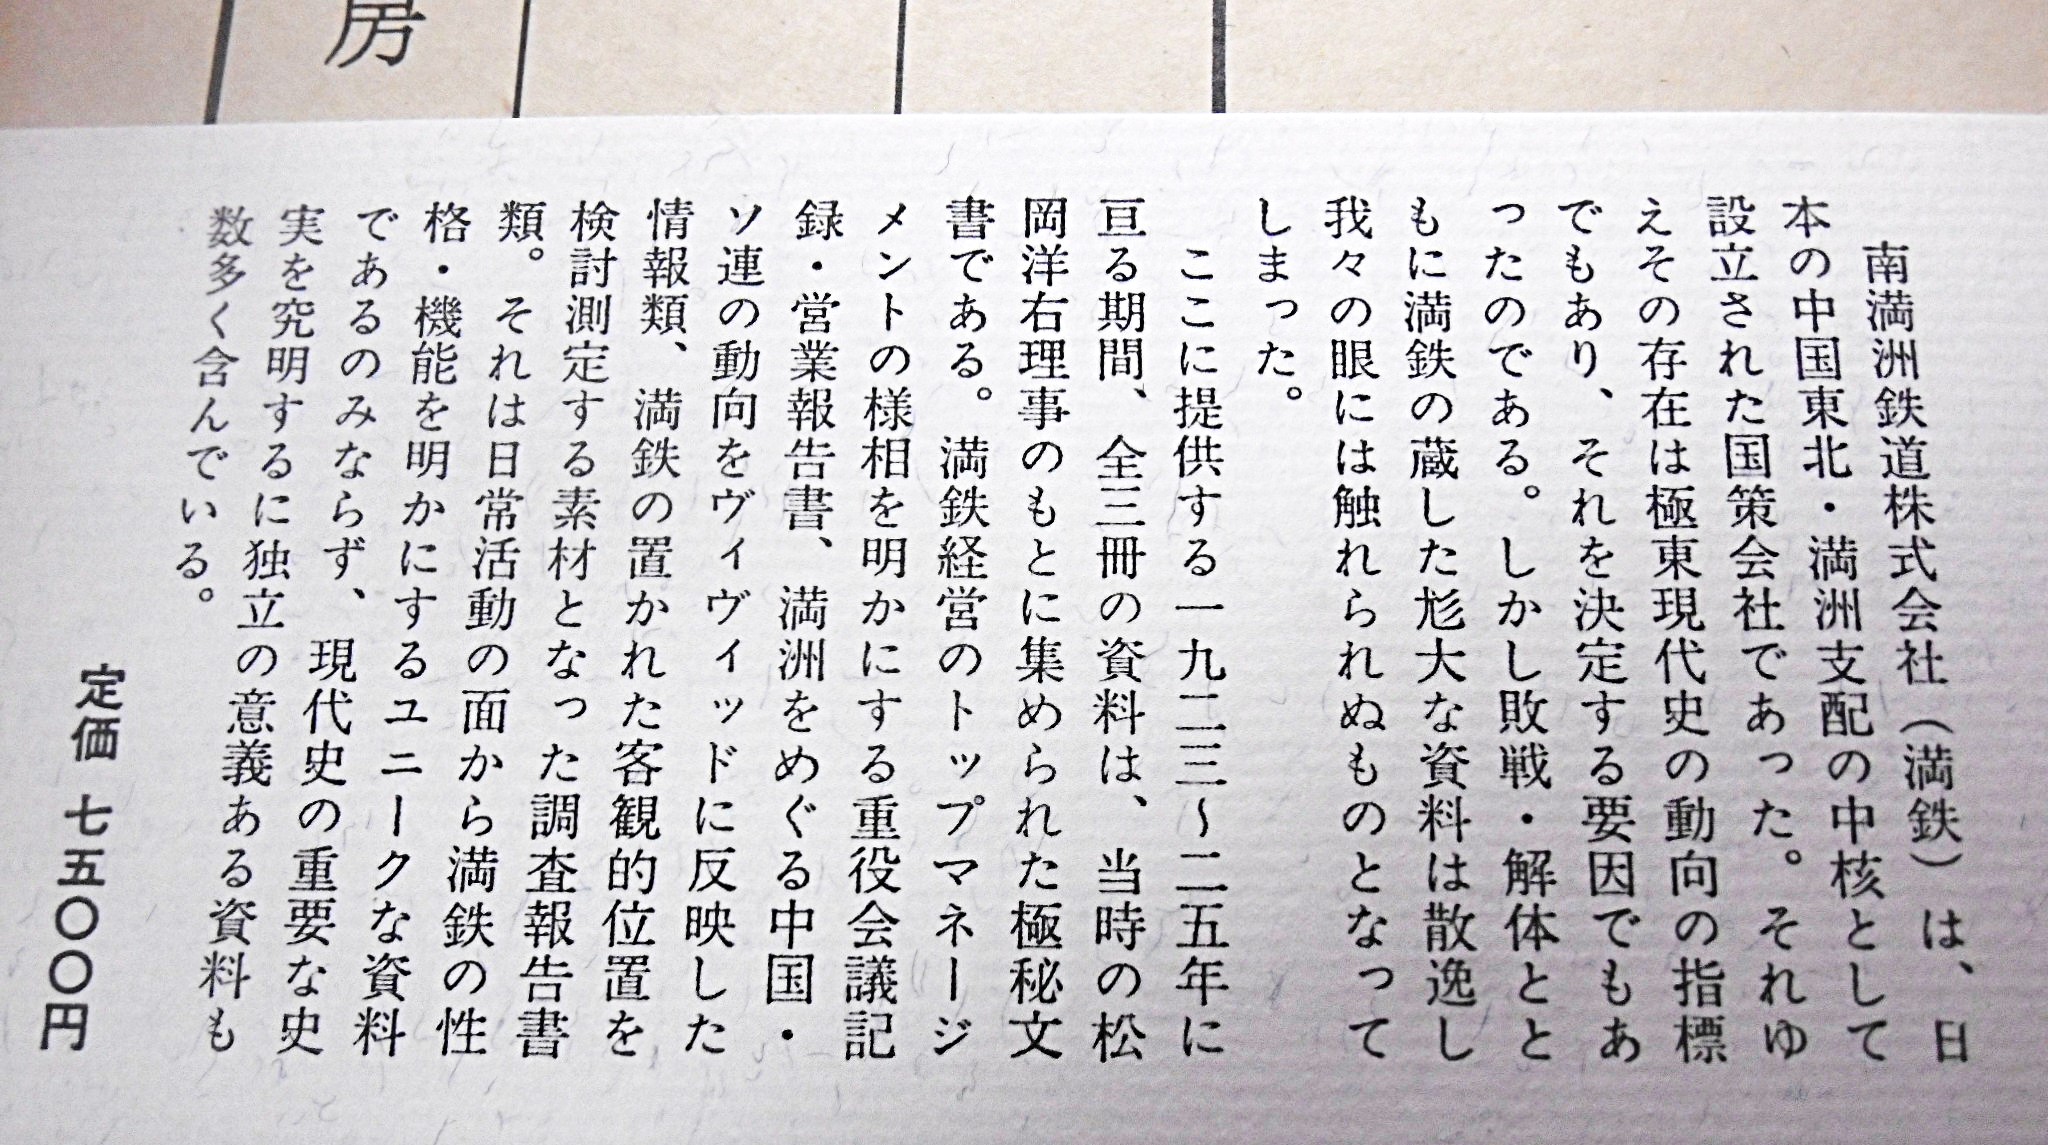 房
南満洲鉄道株式会社（満鉄）は、日
本の中国東北・満洲支配の中核として
設立された国策会社であった。それゆ
えその存在は極東現代史の動向の指標
でもあり、それを決定する要因でもあ
ったのである。しかし敗戦・解体とと
もに満鉄の蔵した尨大な資料は散逸し
我々の眼には触れられぬものとなって
しまった。
ここに提供する一九二三〜二五年に
亘る期間、全三冊の資料は、当時の松
岡洋右理事のもとに集められた極秘文
書である。満鉄経営のトップマネージ
メントの様相を明かにする重役会議記
録・営業報告書、満洲をめぐる中国・
ソ連の動向をヴィヴィッドに反映した
情報類、満鉄の置かれた客観的位置を
検討測定する素材となった調査報告書
類。それは日常活動の面から満鉄の性
格・機能を明かにするユニークな資料
であるのみならず、現代史の重要な史
実を究明するに独立の意義ある資料も
数多く含んでいる。
定価 七五〇〇円